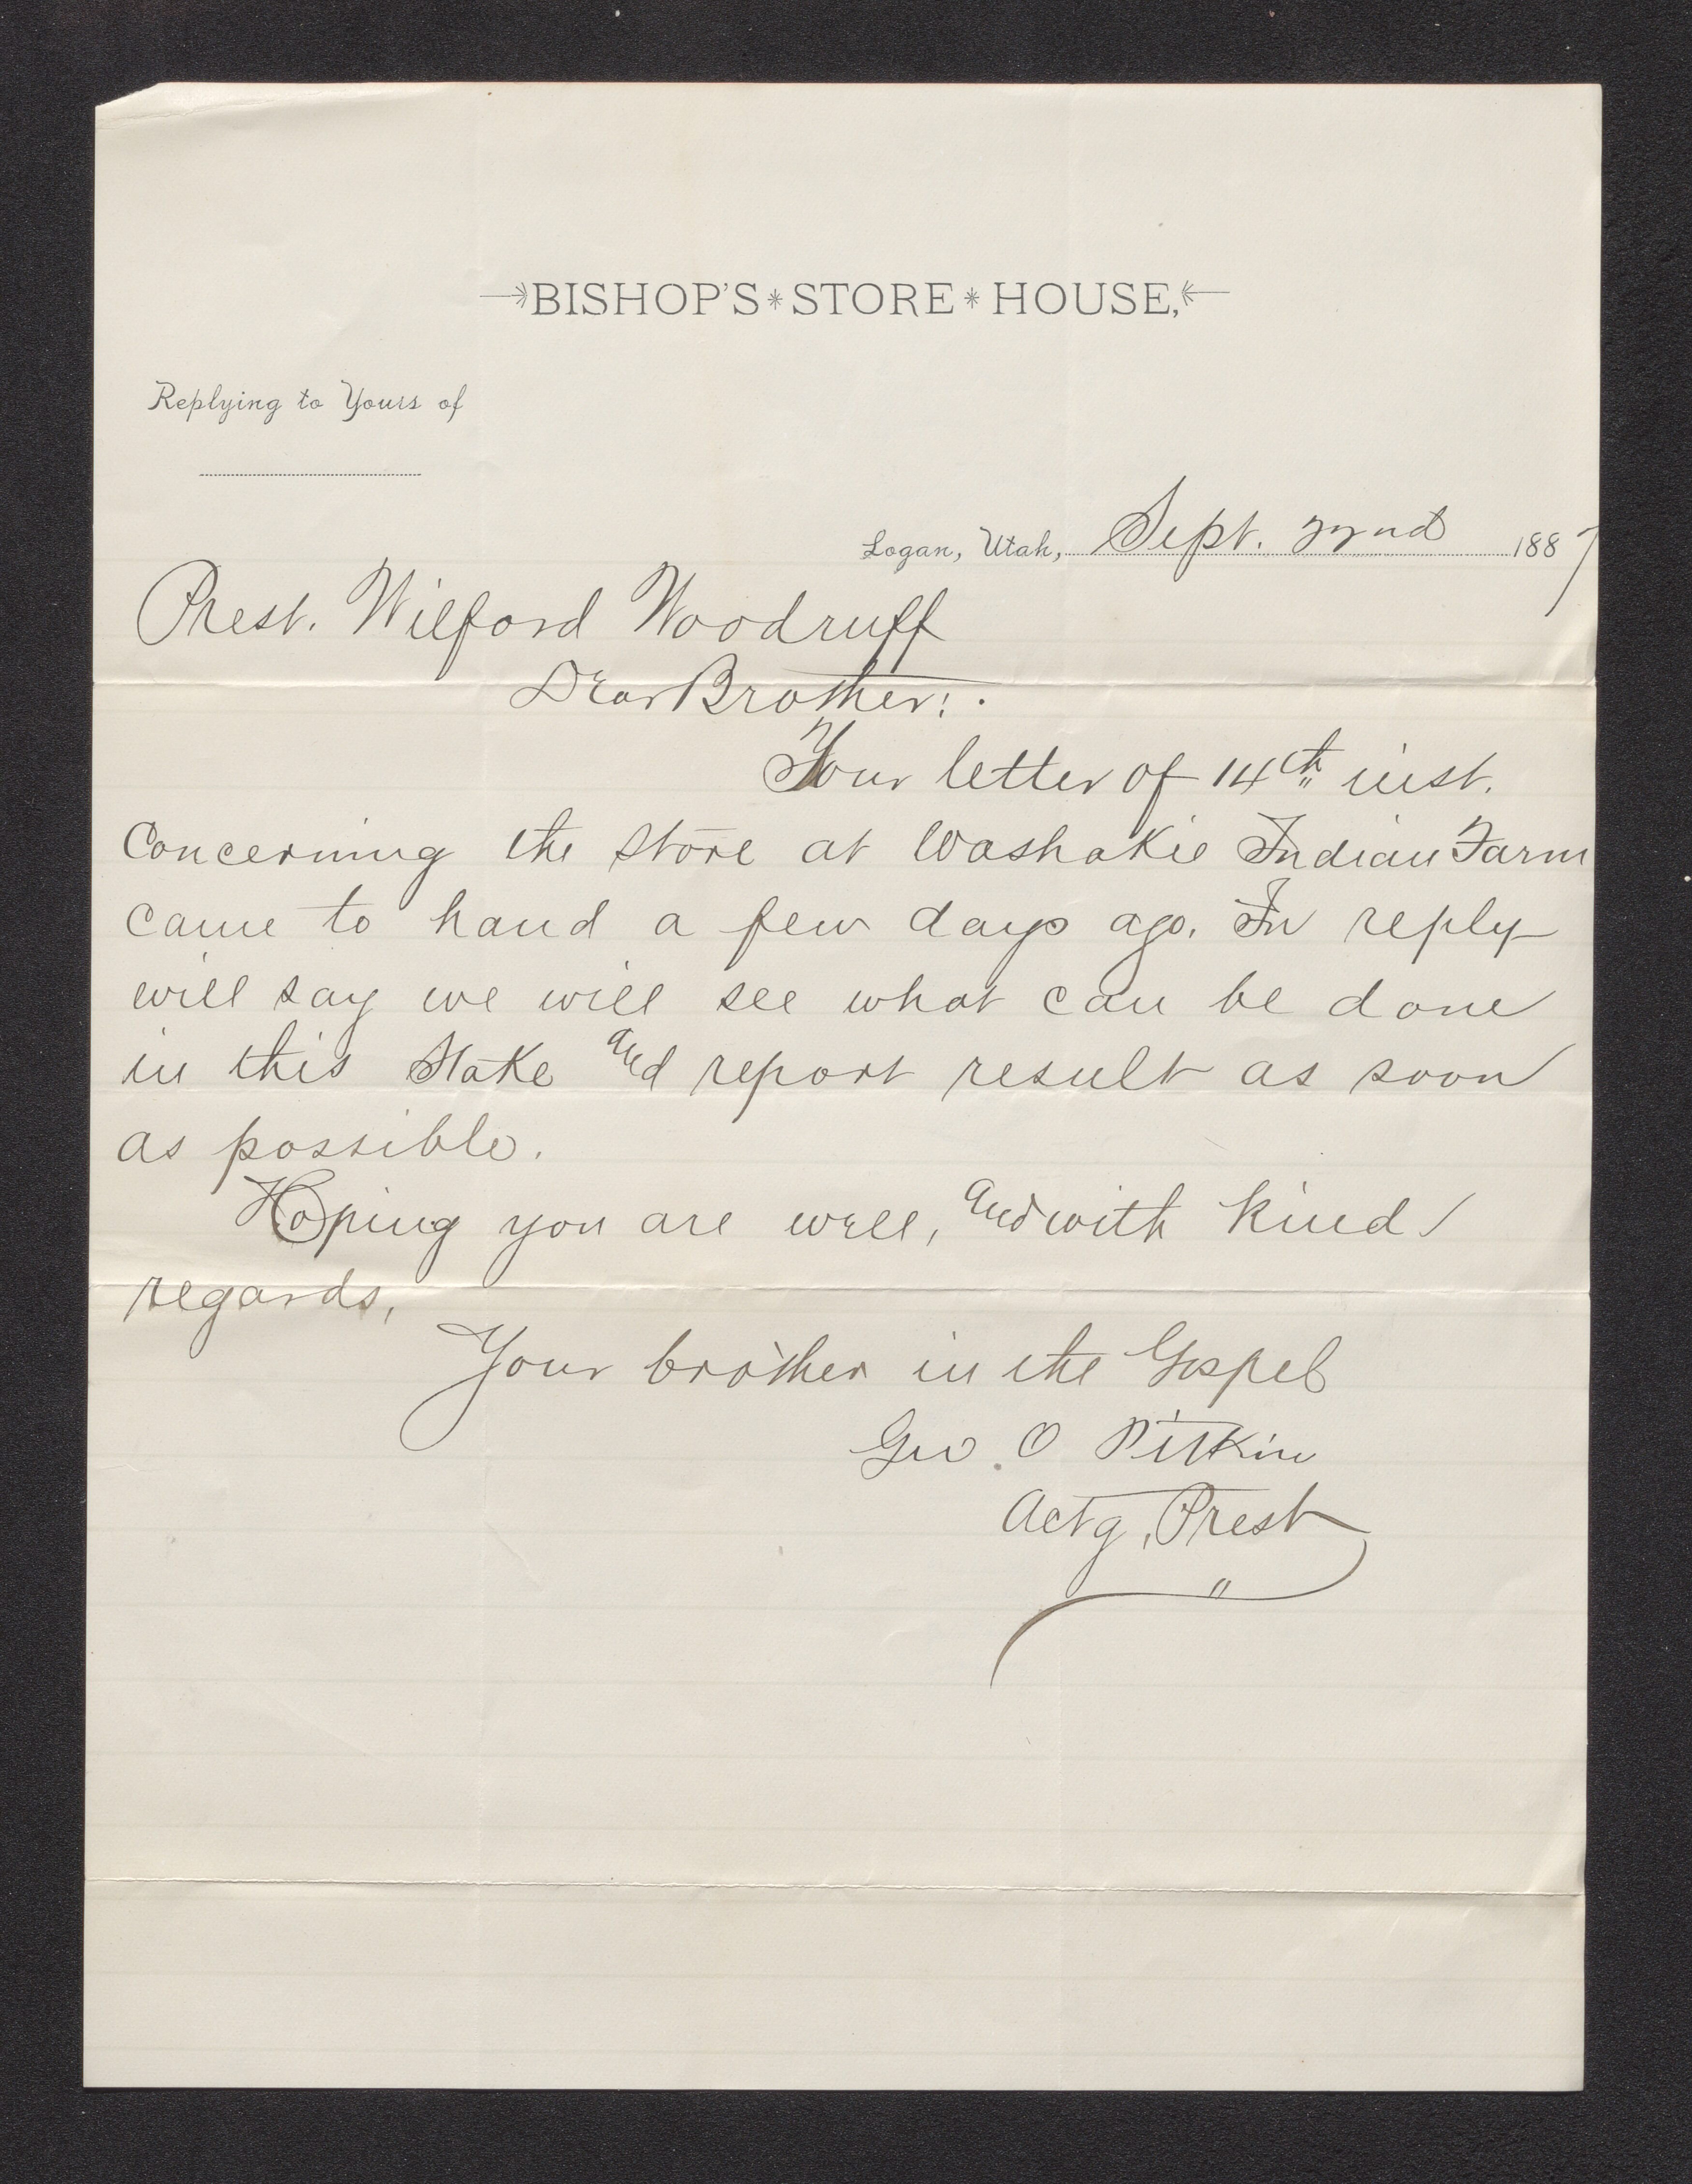 BISHOP'S * STORE * HOUSE,
Replying to Yours of
Logan, Utah, Sept. 22nd 1887
Prest. Wilford Woodruff
Dear Brother:
Your letter of 14th inst.
Concerning the store at Washakie Indian Farm
came to hand a few days ago. In reply
will say we will see what can be done
in this Stake and report result as soon
as possible.
Hoping you are well, and with kind
regards,
Your brother in the Gospel
Geo. O Pitkin
Actg. Prest